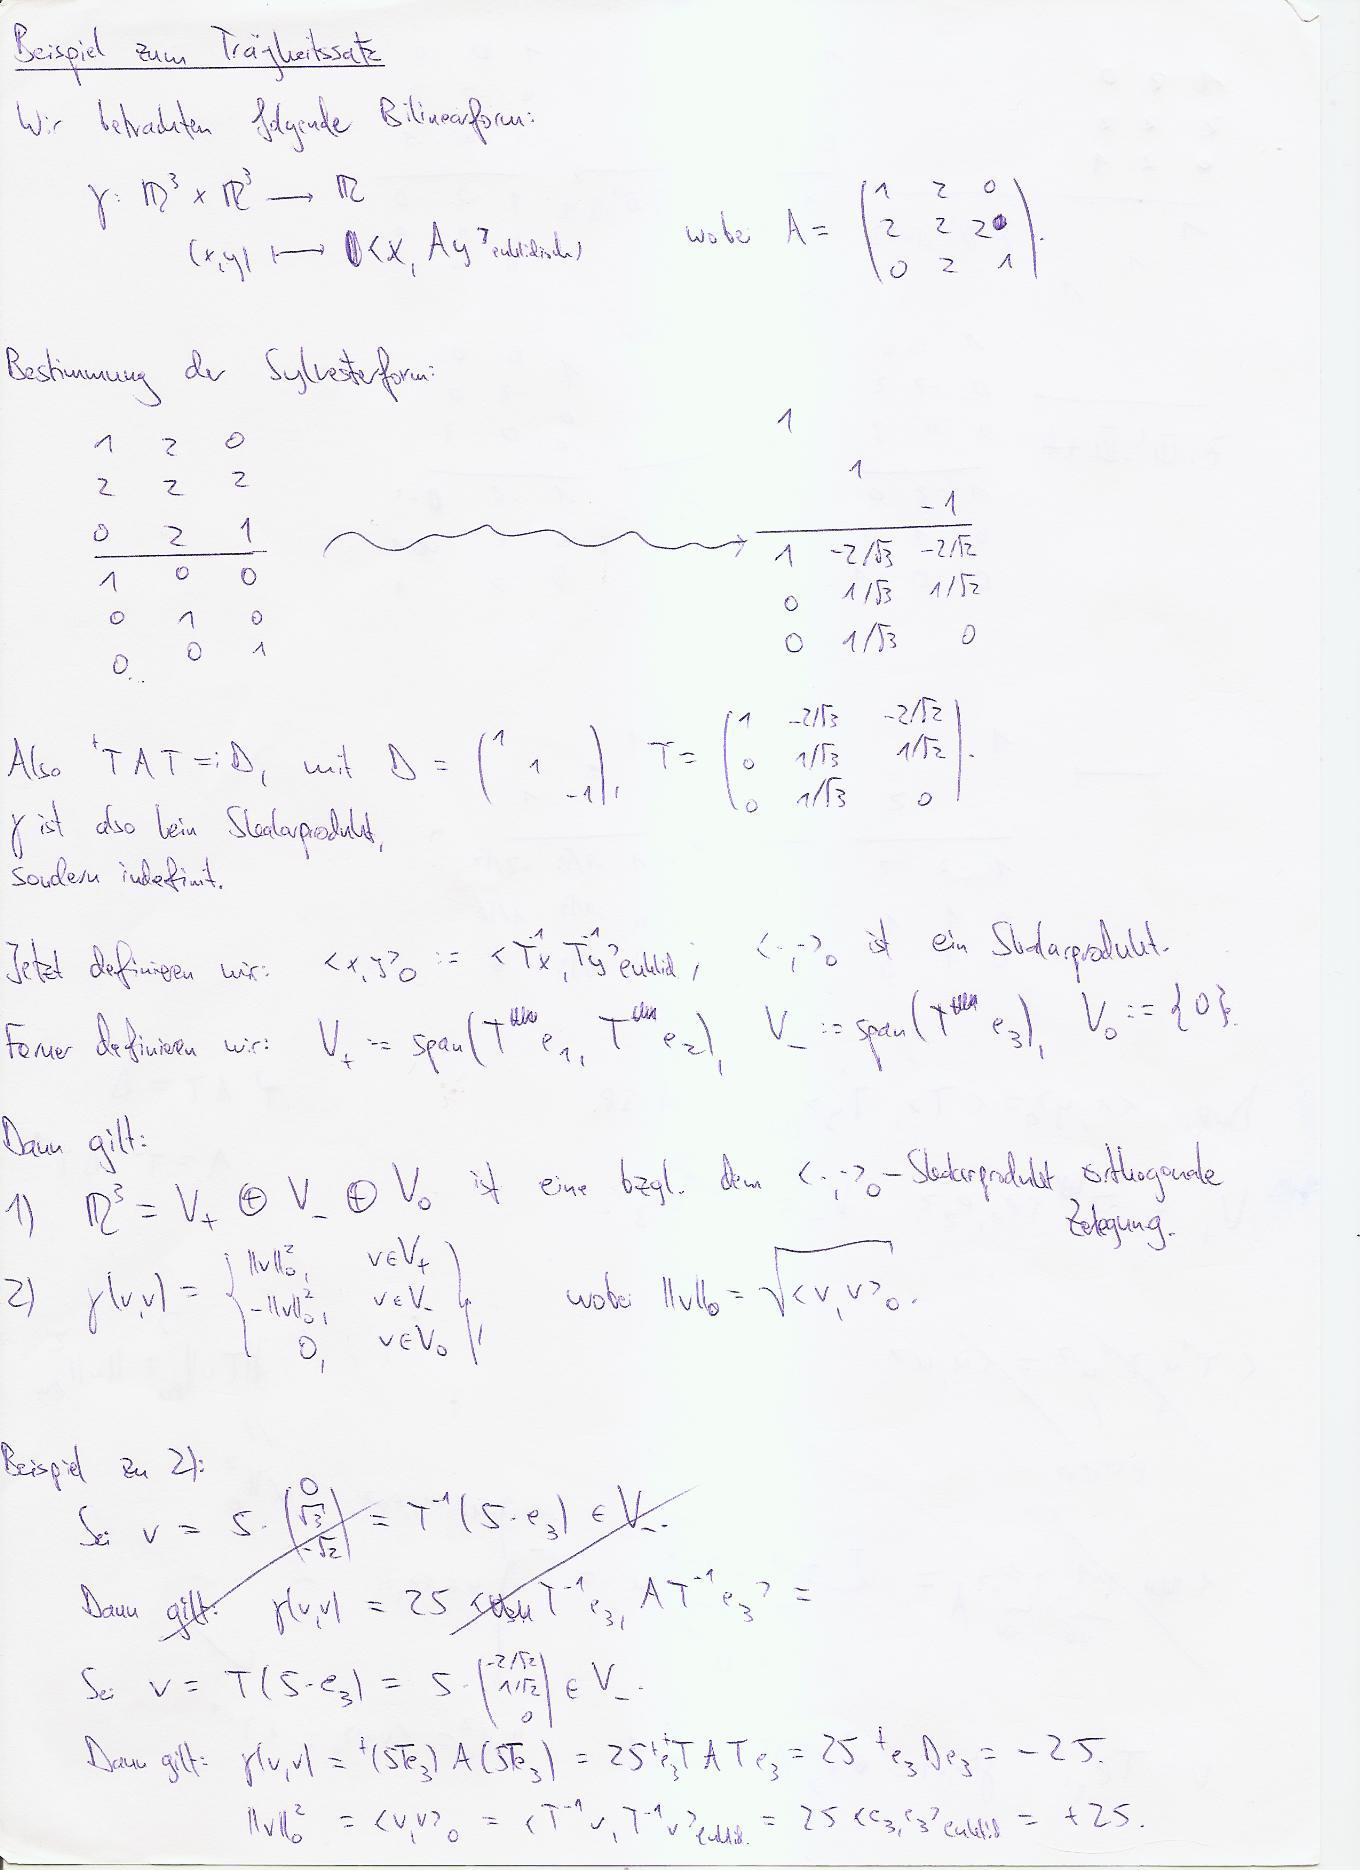 Beispiel zum Trägheitssatz
Wir betrachten folgende Bilinearform:
γ: ℝ³ × ℝ³ → ℝ
(x,y) ↦ <x, Ay>euklidisch, wobei A = (1 2 0
2 2 2
0 2 1).
Bestimmung der Sylvesterform:
1 2 0      1
2 2 2      1
0 2 1      -1
1 0 0      1 -2/√3 -2/√2
0 1 0      0 1/√3 1/√2
0 0 1      0 1/√3 0
Also ᵗTAT =: D, mit D = (1 1 -1), T = (1 -2/√3 -2/√2
0 1/√3 1/√2
0 1/√3 0).
γ ist also kein Skalarprodukt,
sondern indefinit.
Jetzt definieren wir: <x,y>₀ := <T⁻¹x, T⁻¹y>euklid, <·,·>₀ ist ein Skalarprodukt.
Ferner definieren wir: V₊ := span(T e₁, T e₂), V₋ := span(T e₃), V₀ := {0}.
Dann gilt:
1) ℝ³ = V₊ ⊕ V₋ ⊕ V₀ ist eine bzgl. dem <·,·>₀-Skalarprodukt orthogonale
Zelegung.
2) γ(v,v) = { ||v||₀², v∈V₊
-||v||₀², v∈V₋
0, v∈V₀ }, wobei ||v||₀ = √<v,v>₀.
Beispiel zu 2):
Sei v = 5·(0 √3 -√2) = T⁻¹(5·e₃) ∈ V₋.
Dann gilt: γ(v,v) = 25 < T⁻¹e₃, AT⁻¹e₃> =
Sei v = T(5·e₃) = 5·(-2/√2 1/√2 0) ∈ V₋.
Dann gilt: γ(v,v) = ᵗ(5Te₃) A(5Te₃) = 25 ᵗe₃ᵗTATe₃ = 25 ᵗe₃De₃ = -25.
||v||₀² = <v,v>₀ = <T⁻¹v, T⁻¹v>euklid. = 25 <e₃,e₃>euklid = +25.